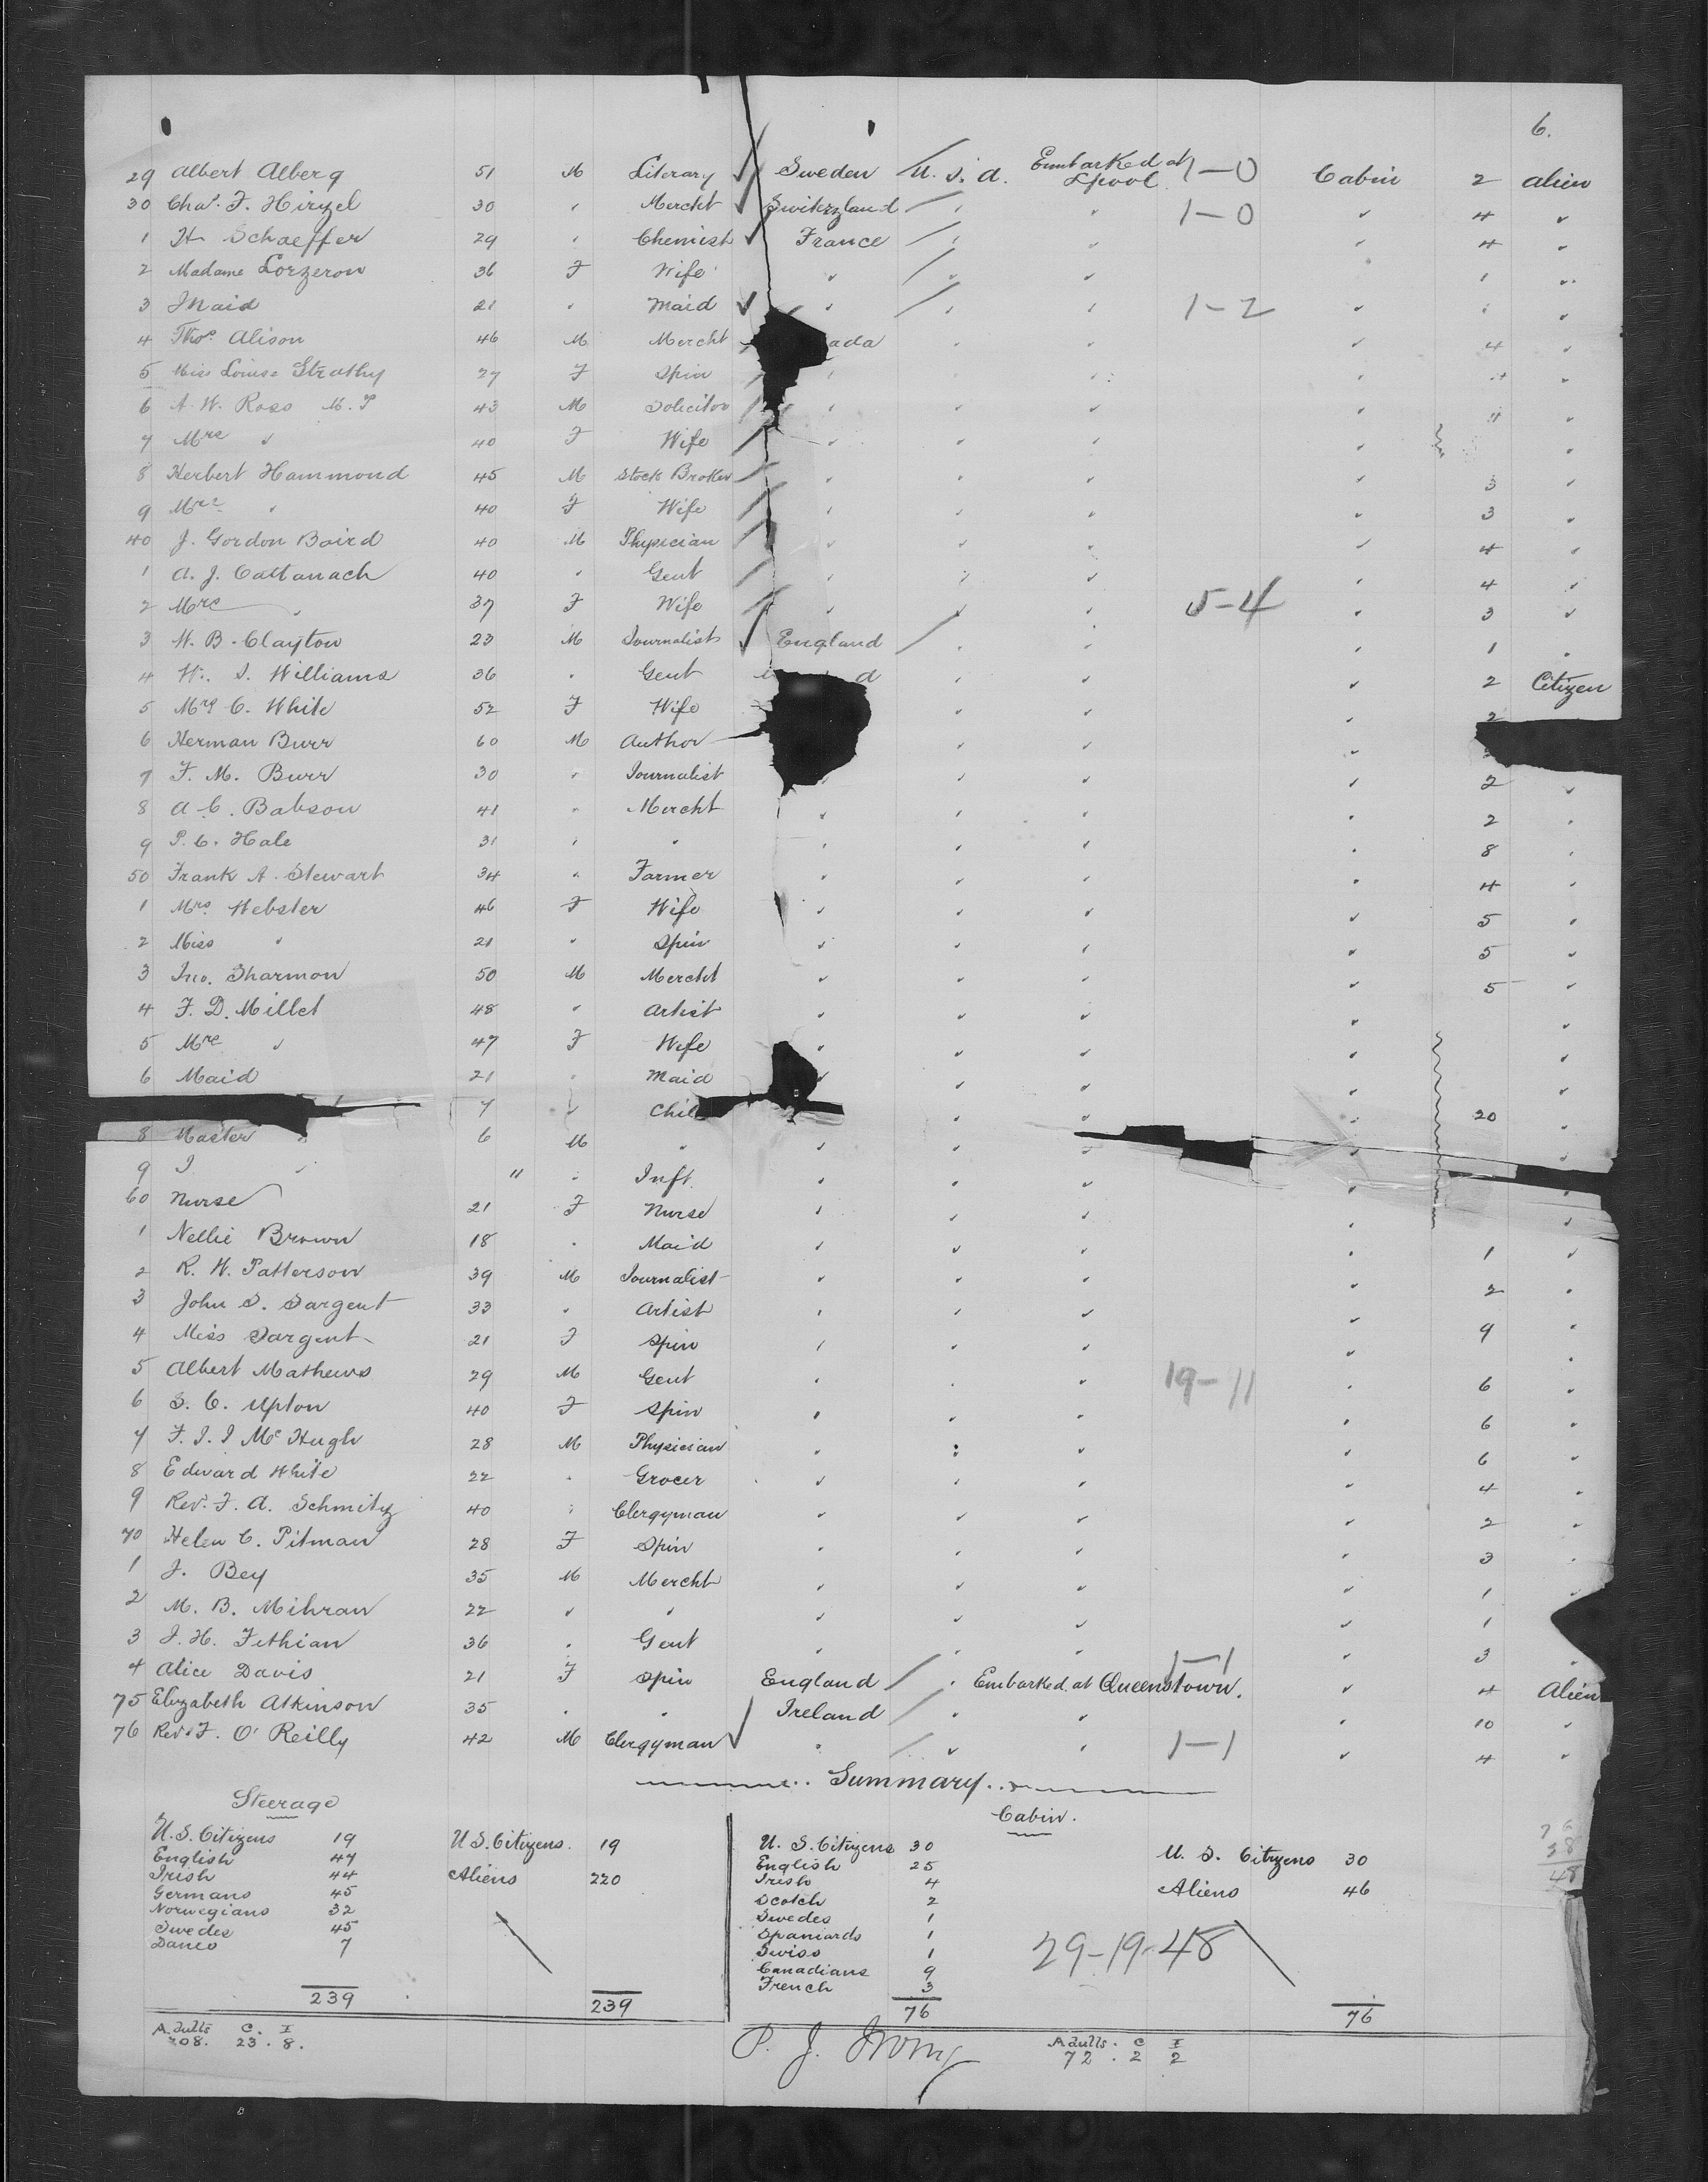 6.
29 Albert Alberg 51 M Literary Sweden U. S. A. Embarked at L'pool 1-0 Cabin 2 Alien
30 Chas. F. Hirzel 30 " Mercht Switzzland " " 1-0 " 4 "
1 H Schaeffer 29 " Chemist France " " " 4 "
2 Madame Lorzeron 36 F Wife " " " " 1 "
3 Maid 21 " Maid " " " 1-2 " " "
4 Thos. Alison 46 M Mercht ada " " " 4 "
5 Miss Louise Strathy 27 F Spin " " " " 4 "
6 A. W. Ross M. P 43 M Solicitor " " " " "
7 Mrs " 40 F Wife " " " " "
8 Herbert Hammond 45 M Stock Broker " " " " 3 "
9 Mrs " 40 F Wife " " " " 3 "
40 J. Gordon Baird 40 M Physician " " " " 4 "
1 A. J. Cattanach 40 " Gent " " " " 4 "
2 Mrs " 37 F Wife " " " 5-4 " 3 "
3 W. B. Clayton 23 M Journalist England " " " 1 "
4 Williams 36 " Gent d " " " 2 Citizen
5 Mrs C. White 52 F Wife " " " 2
6 Herman Burr 60 M Author " " "
7 F. M. Burr 30 " Journalist " " " 2 "
8 A. C. Babson 41 " Mercht " " " " 2 "
9 P. C. Hale 31 " " " " " " 8 "
50 Frank A. Stewart 34 " Farmer " " " " 4 "
1 Mrs. Webster 46 F Wife " " " " 5 "
2 Miss " 21 " Spin " " " " 5 "
3 Jno. Sharmon 50 M Mercht " " " " 5 "
4 F. D. Millet 48 " Artist " " " " "
5 Mrs " 47 F Wife " " " " "
6 Maid 21 " Maid " " " " "
7 " Chil " " " 20 "
8 Master " 6 M " " " " " "
9 " " " Inft. " " " "
60 Nurse 21 F Nurse " " " " "
1 Nellie Brown 18 " Maid " " " " 1 "
2 R. W. Patterson 39 M Journalist " " " " 2 "
3 John S. Sargent 33 " Artist " " " " 9 "
4 Miss Sargent 21 F Spin " " " " "
5 Albert Mathews 29 M Gent " " " 19-11 " 6 "
6 S. C. Upton 40 F Spin " " " " 6 "
7 F. J. I McHugh 28 M Physician " " " " 6 "
8 Edward White 22 " Grocer " " " " 4 "
9 Rev. F. A. Schmitz 40 " Clergyman " " " " 2 "
70 Helen C. Pitman 28 F Spin " " " " 3 "
1 J. Bey 35 M Mercht " " " " 1 "
2 M. B. Mihran 22 " " " " " " 1
3 J. H. Fithian 36 " Gent " " " " 3 "
4 Alice Davis 21 F Spin England " Embarked at Queenstown. 1-1 " 4 Alien
75 Elizabeth Atkinson 35 " " Ireland " " " 10 "
76 Rev. F. O'Reilly 42 M Clergyman " " " 1-1 " 4 "
Summary
Steerage
U. S. Citizens 19 U S. Citizens. 19
English 47
Irish 44 Aliens 220
Germans 45
Norwegians 32
Swedes 45
Danes 7
239 239
Adults C. I
208. 23. 8.
Cabin.
U. S. Citizens 30 U. S. Citizens 30
English 25
Irish 4 Aliens 46
Scotch 2
Swedes 1
Spaniards 1
Swiss 1
Canadians 9
French 3
76 76
29-19-48
48
Adults. C I
72. 2 2